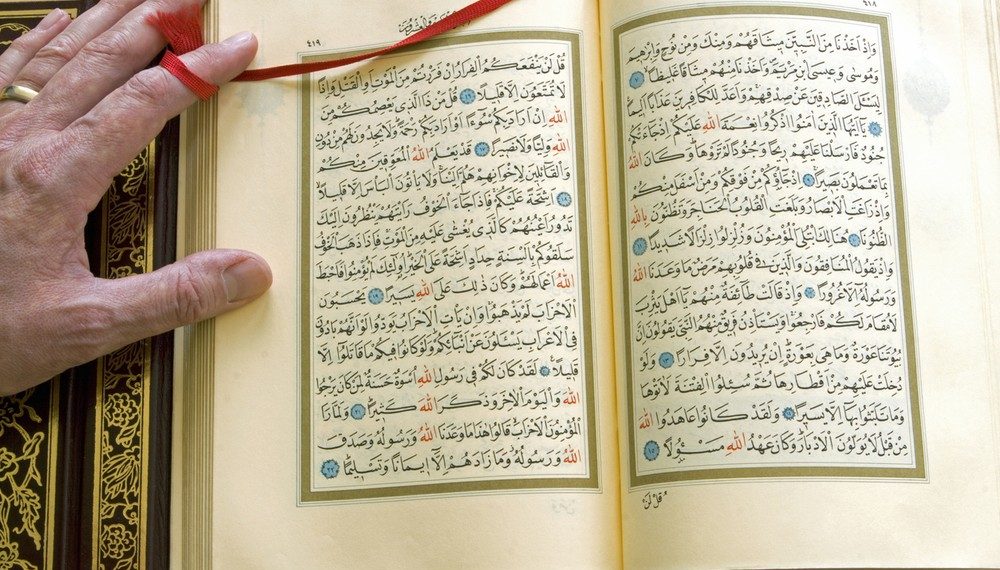 ٤١٨
وَاِذْ اَخَذْنَا مِنَ النَّبِيّنَ مِيثَاقَهُمْ وَمِنْكَ وَمِنْ نُوحٍ وَاِبْرٰهِيمَ
وَمُوسٰى وَعِيسَى ابْنِ مَرْيَمَ وَاَخَذْنَا مِنْهُمْ مِيثَاقًا غَلِيظًا ٧
لِيَسْـَٔلَ الصَّادِقِينَ عَنْ صِدْقِهِمْ وَاَعَدَّ لِلْكَافِرِينَ عَذَابًا اَلِيمًا
٨ يَٓا اَيُّهَا الَّذِينَ اٰمَنُوا اذْكُرُوا نِعْمَةَ اللّٰهِ عَلَيْكُمْ اِذْ جَٓاءَتْكُمْ
جُنُودٌ فَاَرْسَلْنَا عَلَيْهِمْ رِيحًا وَجُنُودًا لَمْ تَرَوْهَا وَكَانَ اللّٰهُ
بِمَا تَعْمَلُونَ بَصِيرًا ٩ اِذْ جَٓاؤُكُمْ مِنْ فَوْقِكُمْ وَمِنْ اَسْفَلَ مِنْكُمْ
وَاِذْ زَاغَتِ الْاَبْصَارُ وَبَلَغَتِ الْقُلُوبُ الْحَنَاجِرَ وَتَظُنُّونَ بِاللّٰهِ
الظُّنُونَا ١٠ هُنَالِكَ ابْتُلِيَ الْمُؤْمِنُونَ وَزُلْزِلُوا زِلْزَالًا شَدِيدًا ١١
وَاِذْ يَقُولُ الْمُنَافِقُونَ وَالَّذِينَ فِي قُلُوبِهِمْ مَرَضٌ مَا وَعَدَنَا اللّٰهُ
وَرَسُولُهُٓ اِلَّا غُرُورًا ١٢ وَاِذْ قَالَتْ طَٓائِفَةٌ مِنْهُمْ يَٓا اَهْلَ يَثْرِبَ
لَا مُقَامَ لَكُمْ فَارْجِعُوا وَيَسْتَأْذِنُ فَرِيقٌ مِنْهُمُ النَّبِيَّ يَقُولُونَ اِنَّ
بُيُوتَنَا عَوْرَةٌ وَمَا هِيَ بِعَوْرَةٍ اِنْ يُرِيدُونَ اِلَّا فِرَارًا ١٣ وَلَوْ
دُخِلَتْ عَلَيْهِمْ مِنْ اَقْطَارِهَا ثُمَّ سُئِلُوا الْفِتْنَةَ لَاٰتَوْهَا
وَمَا تَلَبَّثُوا بِهَٓا اِلَّا يَسِيرًا ١٤ وَلَقَدْ كَانُوا عَاهَدُوا اللّٰهَ
مِنْ قَبْلُ لَا يُوَلُّونَ الْاَدْبَارَ وَكَانَ عَهْدُ اللّٰهِ مَسْؤُلًا ١٥
قُلْ لَنْ
٤١٩
قُلْ لَنْ يَنْفَعَكُمُ الْفِرَارُ اِنْ فَرَرْتُمْ مِنَ الْمَوْتِ اَوِ الْقَتْلِ وَاِذًا
لَا تُمَتَّعُونَ اِلَّا قَلِيلًا ١٦ قُلْ مَنْ ذَا الَّذِي يَعْصِمُكُمْ مِنَ
اللّٰهِ اِنْ اَرَادَ بِكُمْ سُٓوءًا اَوْ اَرَادَ بِكُمْ رَحْمَةً وَلَا يَجِدُونَ لَهُمْ مِنْ دُونِ
اللّٰهِ وَلِيًّا وَلَا نَصِيرًا ١٧ قَدْ يَعْلَمُ اللّٰهُ الْمُعَوِّقِينَ مِنْكُمْ
وَالْقَٓائِلِينَ لِاِخْوَانِهِمْ هَلُمَّ اِلَيْنَا وَلَا يَأْتُونَ الْبَأْسَ اِلَّا قَلِيلًا
١٨ اَشِحَّةً عَلَيْكُمْ فَاِذَا جَٓاءَ الْخَوْفُ رَاَيْتَهُمْ يَنْظُرُونَ اِلَيْكَ
تَدُورُ اَعْيُنُهُمْ كَالَّذِي يُغْشٰى عَلَيْهِ مِنَ الْمَوْتِ فَاِذَا ذَهَبَ الْخَوْفُ
سَلَقُوكُمْ بِاَلْسِنَةٍ حِدَادٍ اَشِحَّةً عَلَى الْخَيْرِ اُولٰٓئِكَ لَمْ يُؤْمِنُوا فَاَحْبَطَ
اللّٰهُ اَعْمَالَهُمْ وَكَانَ ذٰلِكَ عَلَى اللّٰهِ يَسِيرًا ١٩ يَحْسَبُونَ
الْاَحْزَابَ لَمْ يَذْهَبُوا وَاِنْ يَأْتِ الْاَحْزَابُ يَوَدُّوا لَوْ اَنَّهُمْ بَادُونَ
فِي الْاَعْرَابِ يَسْـَٔلُونَ عَنْ اَنْبَٓائِكُمْ وَلَوْ كَانُوا فِيكُمْ مَا قَاتَلُٓوا اِلَّا
قَلِيلًا ٢٠ لَقَدْ كَانَ لَكُمْ فِي رَسُولِ اللّٰهِ اُسْوَةٌ حَسَنَةٌ لِمَنْ كَانَ يَرْجُوا
اللّٰهَ وَالْيَوْمَ الْاٰخِرَ وَذَكَرَ اللّٰهَ كَثِيرًا ٢١ وَلَمَّا رَاَ
الْمُؤْمِنُونَ الْاَحْزَابَ قَالُوا هٰذَا مَا وَعَدَنَا اللّٰهُ وَرَسُولُهُ وَصَدَقَ
اللّٰهُ وَرَسُولُهُ وَمَا زَادَهُمْ اِلَّٓا اِيمَانًا وَتَسْلِيمًا ٢٢